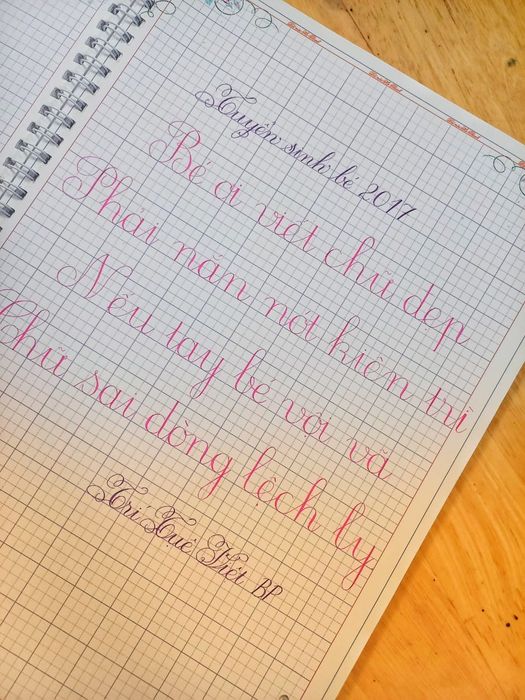 Tuyển sinh bé 2017
Bé ơi viết chữ đẹp
Phải nắn nót kiên trì
Nếu tay bé vội vã
Chữ sai dòng lệch ly
Trí Tuệ Việt BP